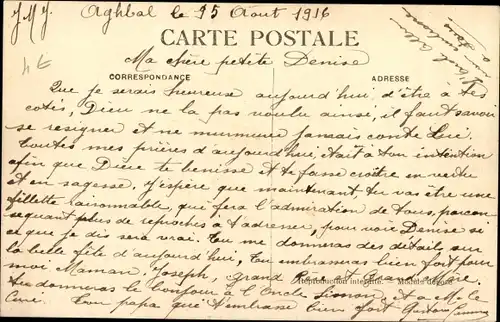 J.M.J. Aghbal le 15 Aout 1916
CARTE POSTALE
4€
Ma chère petite Denise
CORRESPONDANCE
ADRESSE
Que je serais heureuse aujourd'hui d'être a tes
cotés, Dieu ne la pas voulu ainsi, il faut savoir
se resigner et ne murmurer jamais contre Lui.
Toutes mes prières d'aujourd'hui, était a ton intention
afin que Dieu te benisse et te fasse croître en vertu
et en sagesse. J'espère que maintenant, tu vas être une
fillette raisonnable, qui fera l'admiration de tous, pas con-
sequant plus de reproches a t'adresser, pour voir Denise si
ce que je dis sera vrai. Tu me donneras des détails sur
la belle fête d'aujourd'hui, tu embrasseras bien fort pour
moi Maman, Joseph, Grand Père et Grand Mère.
Reproduction interdite. — Modèle déposé
tu donneras le bonjour a l'Oncle Simon, et a M. le
Curé. Ton papa qui t'embrasse bien fort Gaston